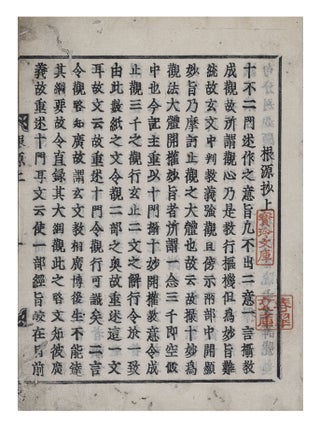 根源抄上
十不二門述作之意旨凡不出二意一言攝教
成觀故所謂觀心乃是教行樞機但為妙旨難
故玄文中判教義強觀且傍示兩部中開顯
妙旨乃摩訶止觀之大體也故云故撮十妙為
觀法大體開權妙旨者所謂一念三千即空假
中也今記主重以十門十妙開權教意令成
止觀三千之觀行玄止二文之解行令一致
由此數紙之文令觀二部之奥故重述這一文
耳故文云故重述十門令觀行可識矣者
令觀略知廣故謂玄文教相廣博後生不能達
其綱要故令直録其大綱觀此之略文知彼廣
義故重述十門耳文云使一部經旨皎在目前
根源上
寶玲文庫